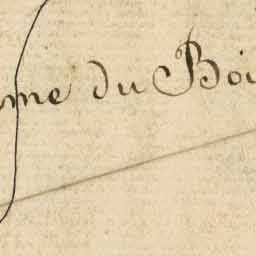 me du Boi